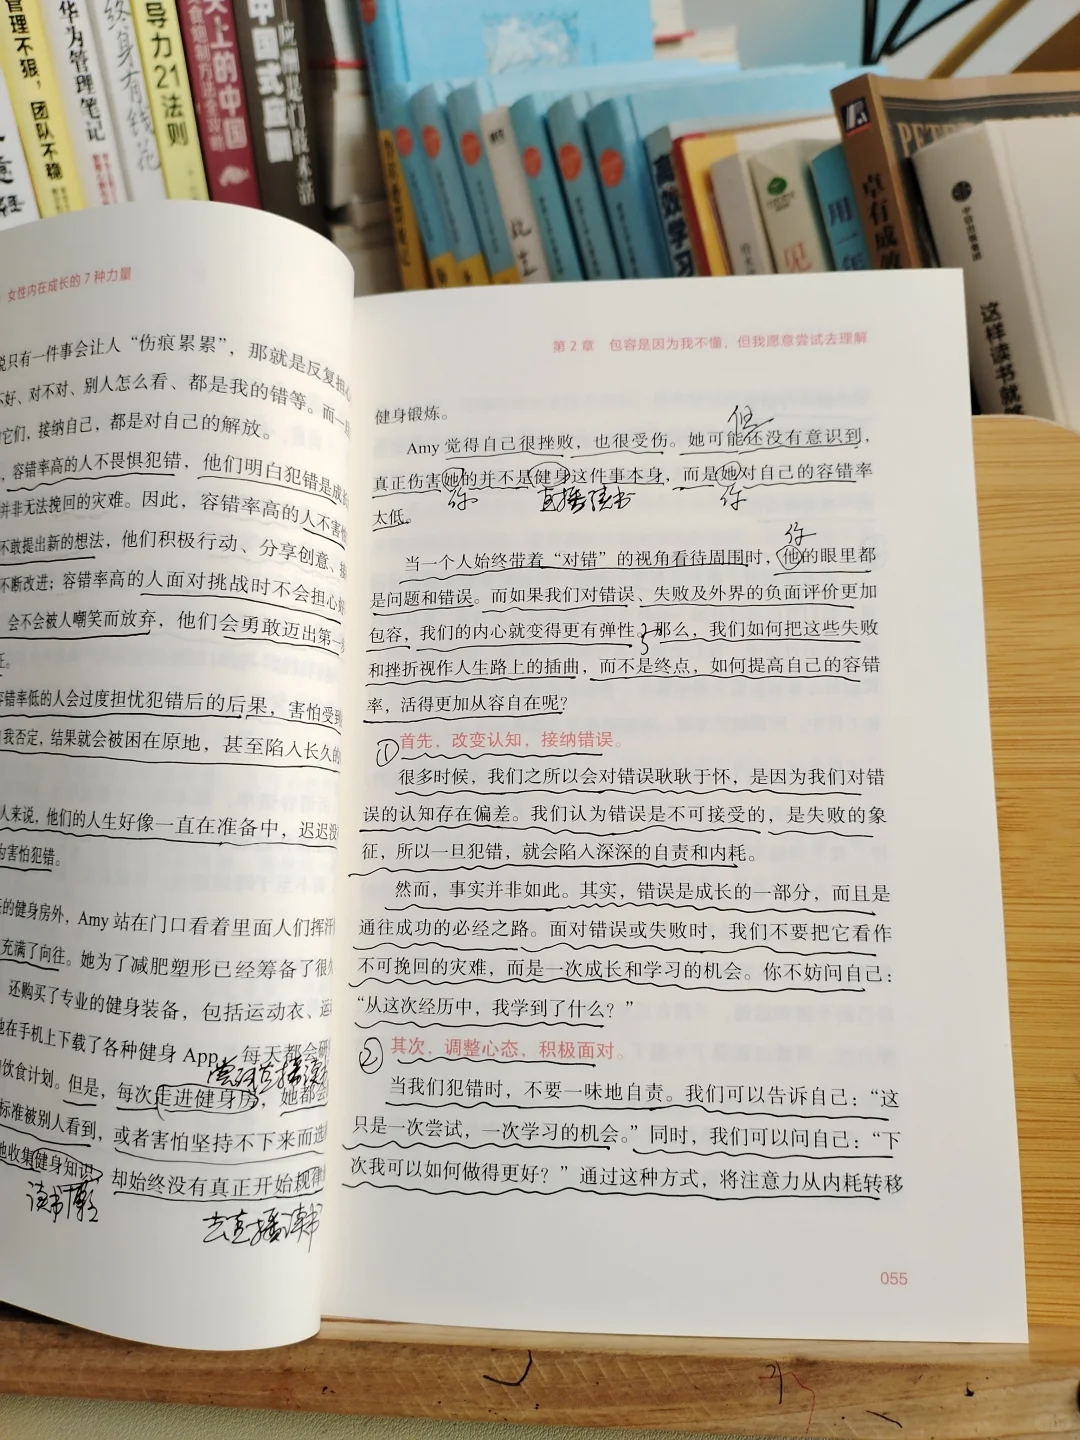 管理不狠，团队不稳
华为管理笔记
终身有钱花
导力21法则
上的中国
中国式应酬
应酬是门技术活
高效学习
见
用一年
卓有成效
PETE
中信出版集团
这样读书就够
女性内在成长的7种力量
说只有一件事会让人“伤痕累累”，那就是反复担心
不好、对不对、别人怎么看、都是我的错等。而一
它们，接纳自己，都是对自己的解放。
，容错率高的人不畏惧犯错，他们明白犯错是成
并非无法挽回的灾难。因此，容错率高的人不害怕
不敢提出新的想法，他们积极行动、分享创意、
不断改进；容错率高的人面对挑战时不会担心
会不会被人嘲笑而放弃，他们会勇敢迈出第一
容错率低的人会过度担忧犯错后的后果，害怕受到
我否定，结果就会被困在原地，甚至陷入长久的
人来说，他们的人生好像一直在准备中，迟迟没
为害怕犯错。
的健身房外，Amy 站在门口看着里面人们挥汗
充满了向往。她为了减肥塑形已经筹备了很
还购买了专业的健身装备，包括运动衣、运
她在手机上下载了各种健身 App，每天都会研
尝试直播读
饮食计划。但是，每次走进健身房，她都会
标准被别人看到，或者害怕坚持不下来而选
她收集健身知识，却始终没有真正开始规律
读书
去直播读书
第 2 章 包容是因为我不懂，但我愿意尝试去理解
健身锻炼。
但
Amy 觉得自己很挫败，也很受伤。她可能还没有意识到，
真正伤害她的并不是健身这件事本身，而是她对自己的容错率
你 直播读书 你
太低。
你
当一个人始终带着“对错”的视角看待周围时，他的眼里都
是问题和错误。而如果我们对错误、失败及外界的负面评价更加
包容，我们的内心就变得更有弹性。那么，我们如何把这些失败
和挫折视作人生路上的插曲，而不是终点，如何提高自己的容错
率，活得更加从容自在呢？
① 首先，改变认知，接纳错误。
很多时候，我们之所以会对错误耿耿于怀，是因为我们对错
误的认知存在偏差。我们认为错误是不可接受的，是失败的象
征，所以一旦犯错，就会陷入深深的自责和内耗。
然而，事实并非如此。其实，错误是成长的一部分，而且是
通往成功的必经之路。面对错误或失败时，我们不要把它看作
不可挽回的灾难，而是一次成长和学习的机会。你不妨问自己：
“从这次经历中，我学到了什么？”
② 其次，调整心态，积极面对。
当我们犯错时，不要一味地自责。我们可以告诉自己：“这
只是一次尝试，一次学习的机会。”同时，我们可以问自己：“下
次我可以如何做得更好？”通过这种方式，将注意力从内耗转移
055